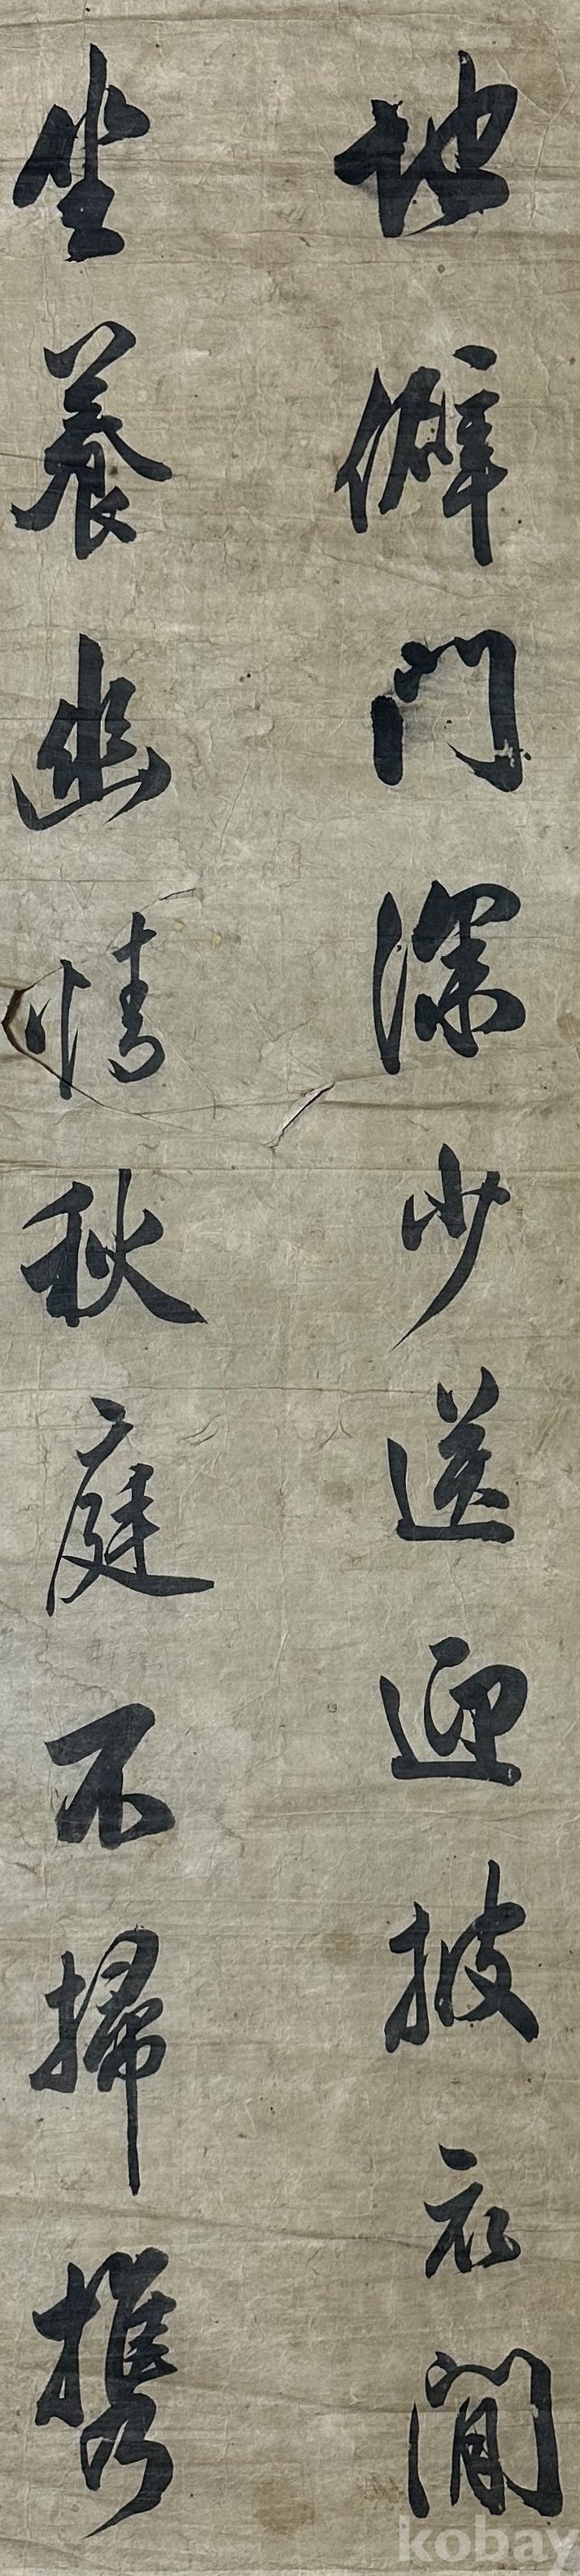 地僻門深少送迎披衣閒
坐養幽情秋庭不掃攜
kobay